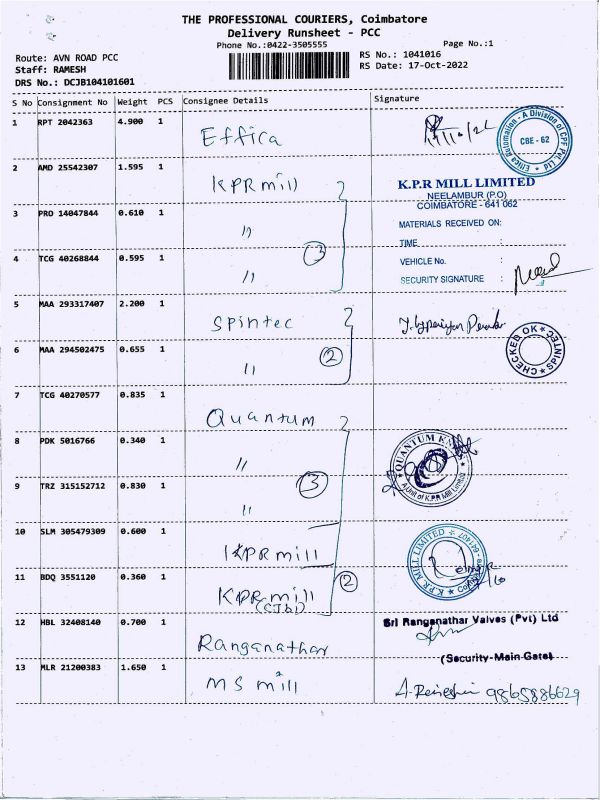 THE PROFESSIONAL COURIERS, Coimbatore
Delivery Runsheet - PCC
Phone No.:0422-3505555
Page No.:1
Route: AVN ROAD PCC
RS No.: 1041016
Staff: RAMESH
RS Date: 17-Oct-2022
DRS No.: DCJB104101601
S No Consignment No Weight PCS Consignee Details Signature
1 RPT 2042363 4.900 1 Effica
Effica Automation - A Division of CPF Pvt. Ltd
CBE - 62
2 AMD 25542307 1.595 1 KPR mill
K.P.R MILL LIMITED
NEELAMBUR (P.O)
COIMBATORE - 641 062
3 PRO 14047844 0.610 1 "
MATERIALS RECEIVED ON:
TIME :
4 TCG 40268844 0.595 1 " 3
VEHICLE No. :
SECURITY SIGNATURE :
5 MAA 293317407 2.200 1 Spintec
6 MAA 294502475 0.655 1 " 2
CHECKED OK SPINTEC
7 TCG 40270577 0.835 1 Quantum
8 PDK 5016766 0.340 1 "
QUANTUM
A Unit of K.P.R Mill Limited
9 TRZ 315152712 0.830 1 " 3
10 SLM 305479309 0.600 1 KPR mill
K.P.R MILL LIMITED
11 BDQ 3551120 0.360 1 KPR mill 2
12 HBL 32408140 0.700 1 Ranganathar
Sri Ranganathar Valves (Pvt) Ltd
(Security-Main Gate)
13 MLR 21200383 1.650 1 MS mill
9865886629